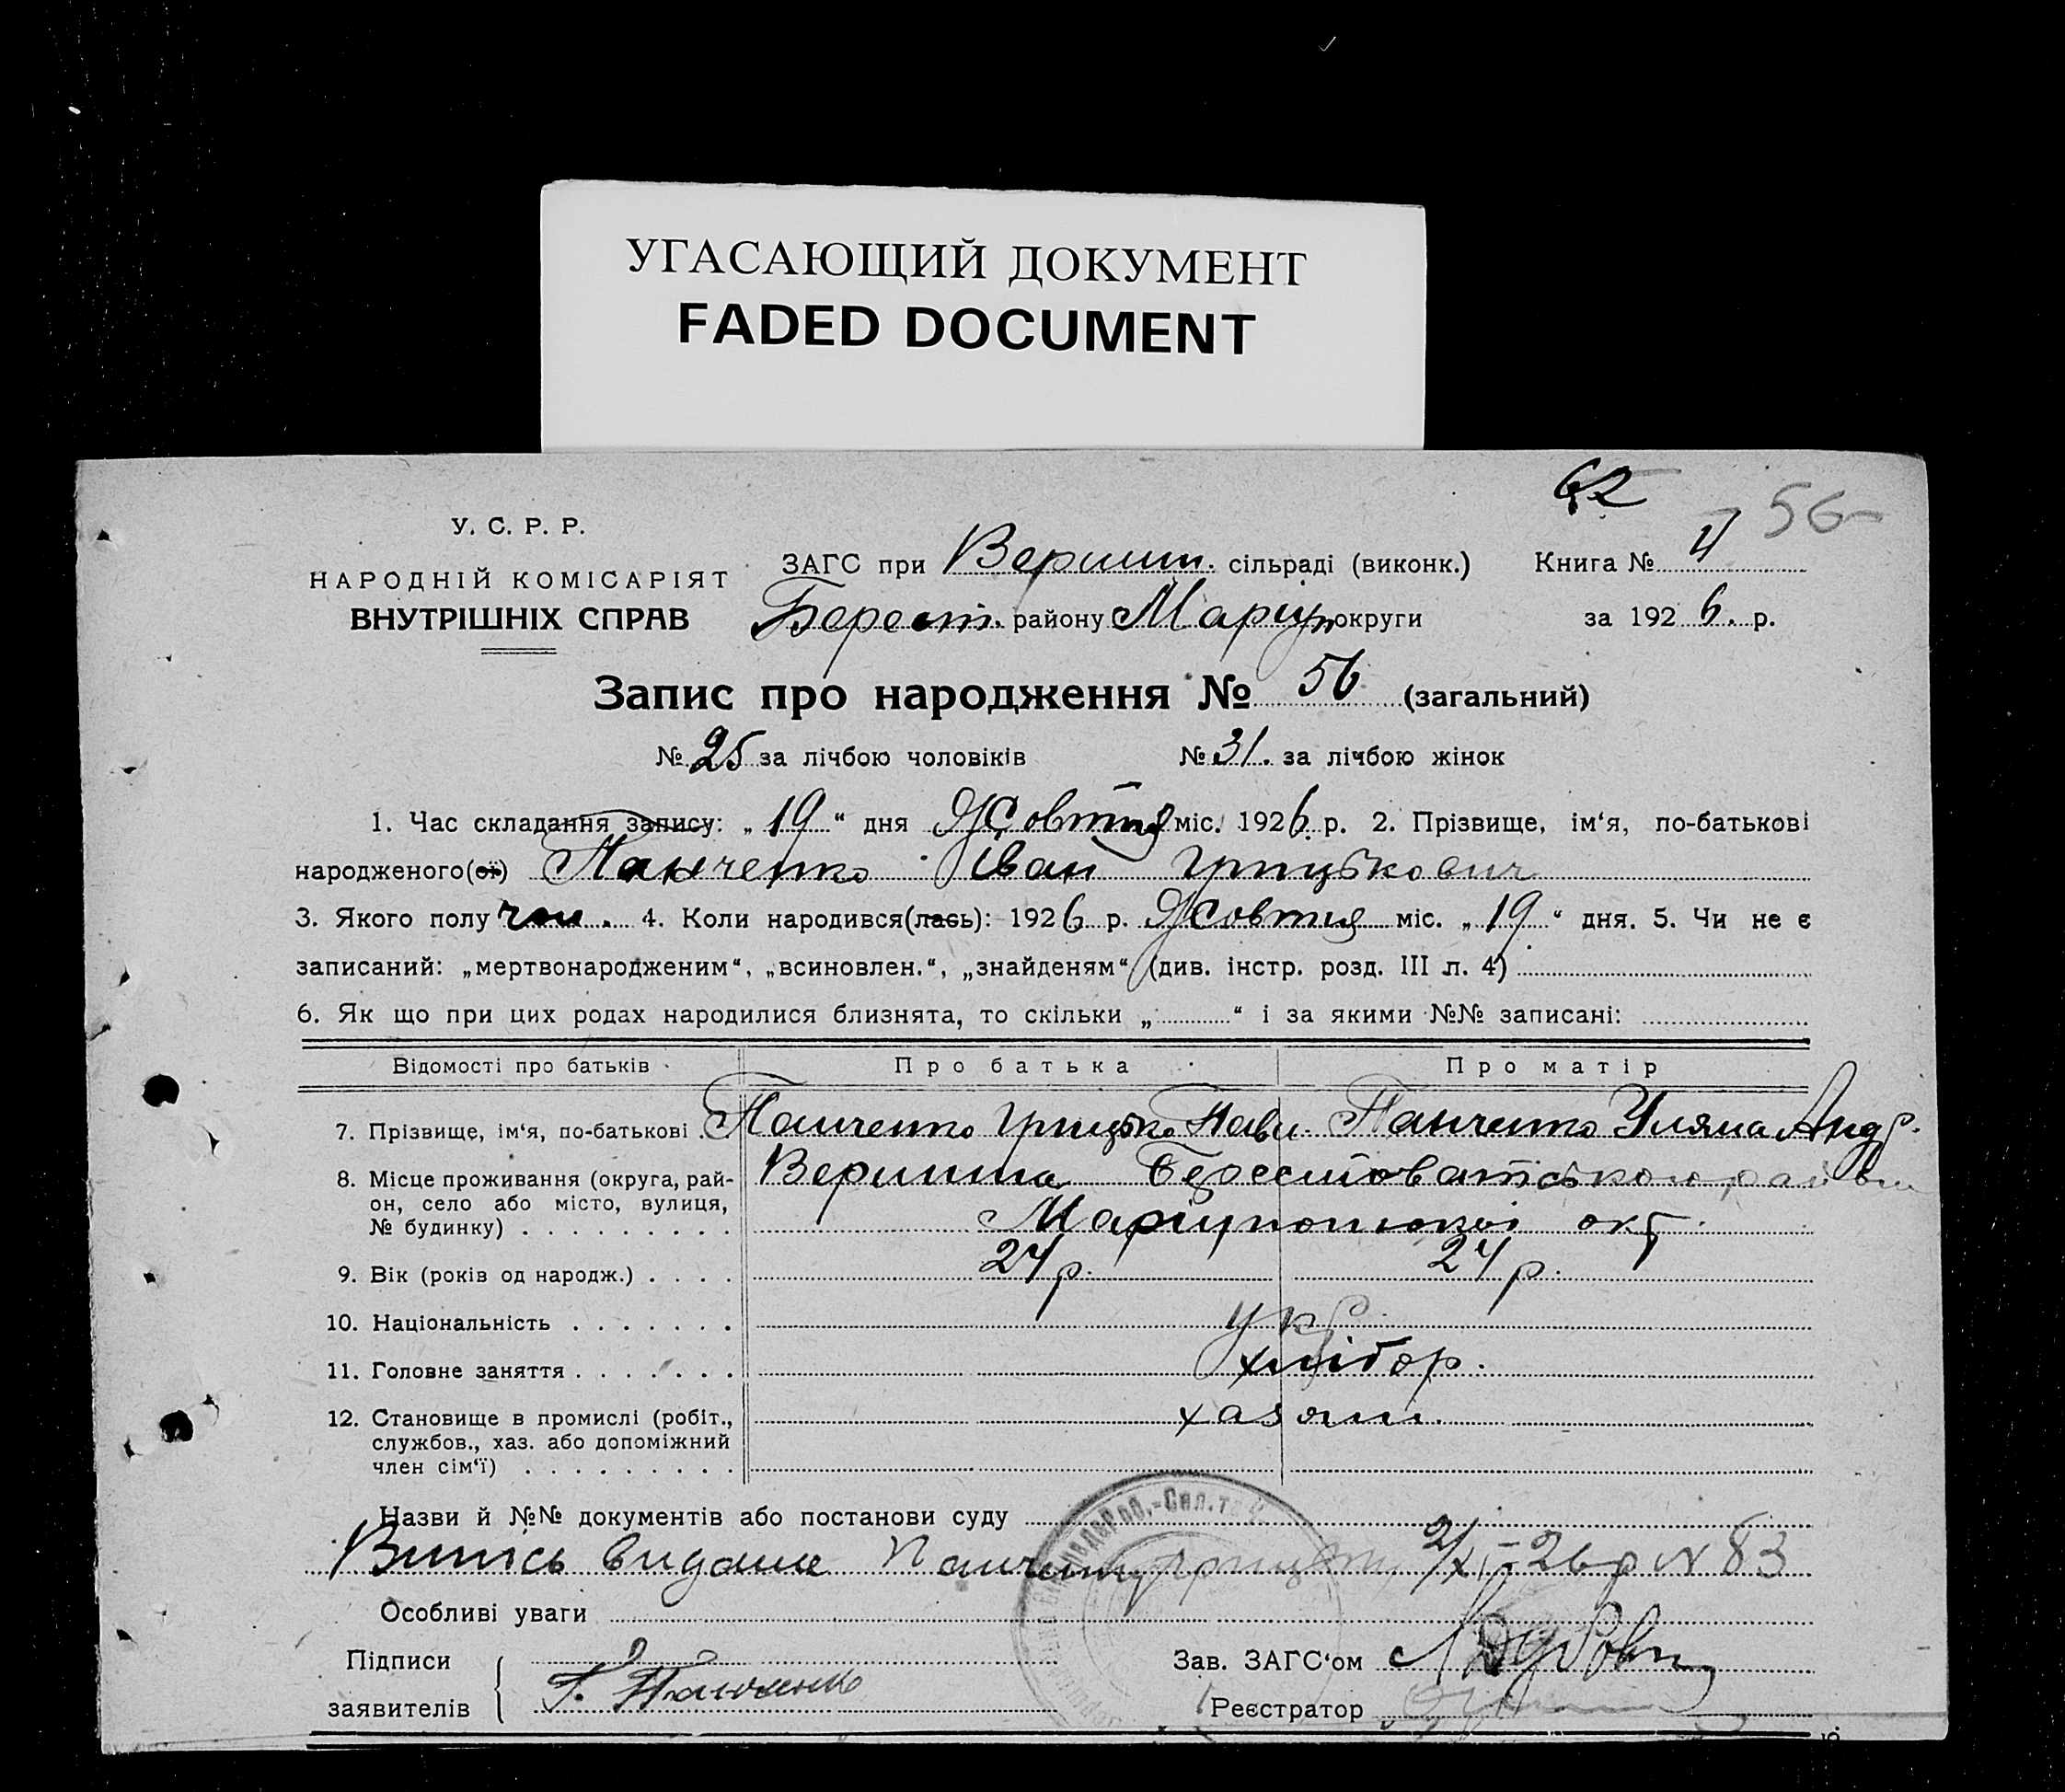 УГАСАЮЩИЙ ДОКУМЕНТ
FADED DOCUMENT
62
56
У. С. Р. Р.
НАРОДНІЙ КОМІСАРІЯТ
ВНУТРІШНІХ СПРАВ
ЗАГС при Вершин. сільраді (виконк.) Книга № 4
Берест. району Маріуп округи за 1926. р.
Запис про народження № 56 (загальний)
№ 25 за лічбою чоловіків № 31. за лічбою жінок
1. Час складання запису: „19“ дня Жовтня міс. 1926 р. 2. Прізвище, ім‘я, по-батькові
народженого(ої) Панченко Іван Грицькович
3. Якого полу чол. 4. Коли народився(лась): 1926 р. Жовтня міс. „19“ дня. 5. Чи не є
записаний: „мертвонародженим“, „всиновлен.“, „знайденям“ (див. інстр. розд. III л. 4)
6. Як що при цих родах народилися близнята, то скільки „ “ і за якими №№ записані:
Відомості про батьків Про батька Про матір
7. Прізвище, ім‘я, по-батькові . Панченко Грицько Павл. Панченко Уляна Андр.
8. Місце проживання (округа, рай-
он, село або місто, вулиця,
№ будинку) . . . . . . . . .
Вершина Берестоватського району
Маріупольскої окр.
9. Вік (років од народж.) . . . . 24 р. 24 р.
10. Національність . . . . . . . укр.
11. Головне заняття . . . . . . . хлібор.
12. Становище в промислі (робіт.,
службов., хаз. або допоміжний
член сім‘ї) . . . . . . . . .
хазяїн.
Назви й №№ документів або постанови суду
Випись видана Панченку Грицьку 2/XI-26 р № 83
Особливі уваги
Підписи
заявителів
Г. Панченко
Зав. ЗАГС‘ом
Реєстратор